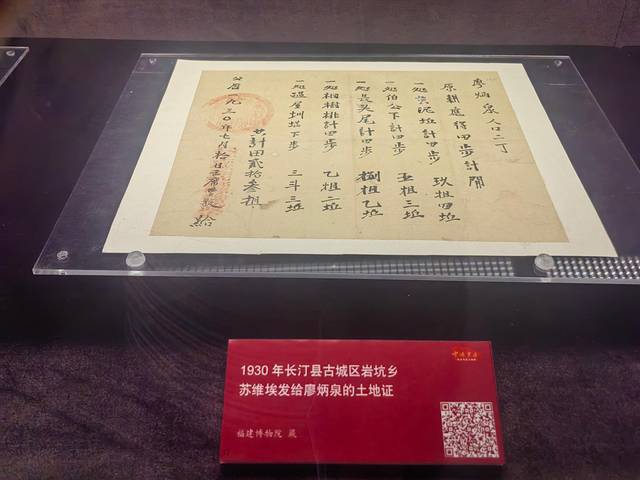 廖炳泉人口二丁
原耕應得四步計開
一処黄泥坵計四步 玖租四坵
一処伯公下計四步 五租三坵
一処長頭尾計四步 捌租乙坵
一処樹排計四步 乙租二坵
一処屋圳塅下步 三斗三坵
共計田貳拾叁租
公曆一九三〇年七月拾日主席 給
1930 年长汀县古城区岩坑乡
苏维埃发给廖炳泉的土地证
福建博物院 藏